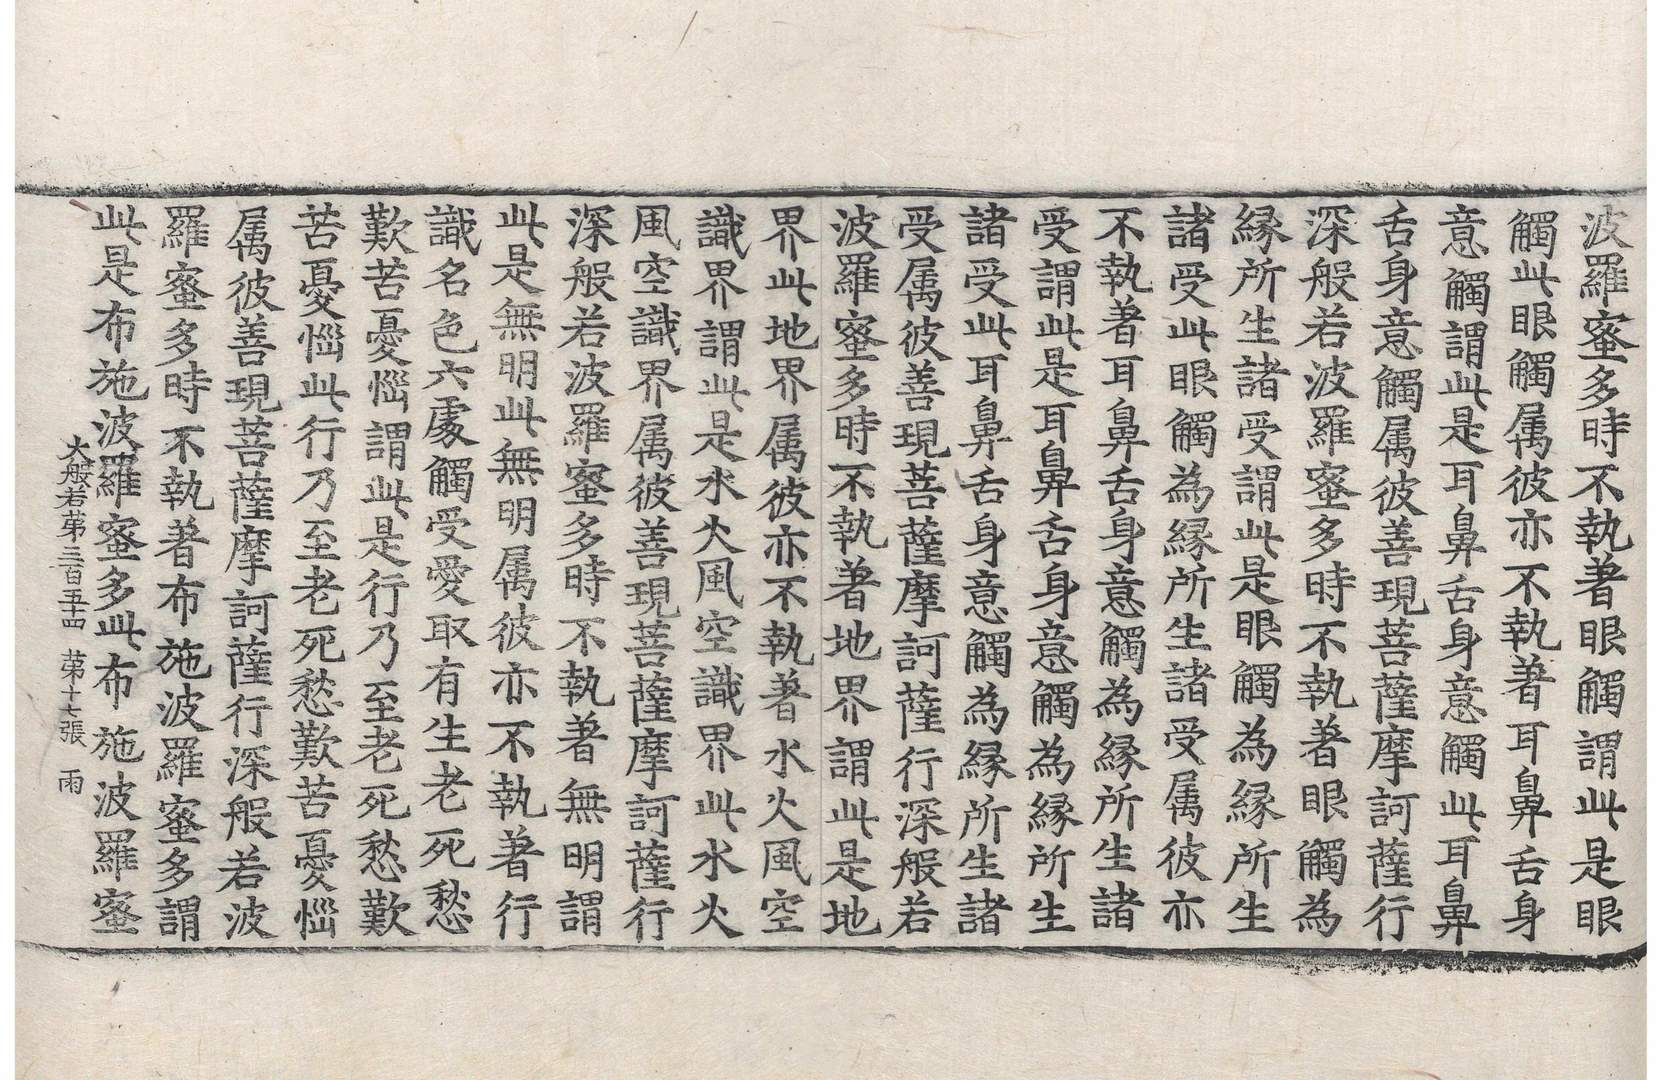 波羅蜜多時不執著眼觸謂此是眼
觸此眼觸属彼亦不執著耳鼻舌身
意觸謂此是耳鼻舌身意觸此耳鼻
舌身意觸属彼善現菩薩摩訶薩行
深般若波羅蜜多時不執著眼觸為
縁所生諸受謂此是眼觸為縁所生
諸受此眼觸為縁所生諸受属彼亦
不執著耳鼻舌身意觸為縁所生諸
受謂此是耳鼻舌身意觸為縁所生
諸受此耳鼻舌身意觸為縁所生諸
受属彼善現菩薩摩訶薩行深般若
波羅蜜多時不執著地界謂此是地
界此地界属彼亦不執著水火風空
識界謂此是水火風空識界此水火
風空識界属彼善現菩薩摩訶薩行
深般若波羅蜜多時不執著無明謂
此是無明此無明属彼亦不執著行
識名色六處觸受愛取有生老死愁
歎苦憂惱謂此是行乃至老死愁歎
苦憂惱此行乃至老死愁歎苦憂惱
属彼善現菩薩摩訶薩行深般若波
羅蜜多時不執著布施波羅蜜多謂
此是布施波羅蜜多此布施波羅蜜
大般若第三百五十四 第十七張 雨